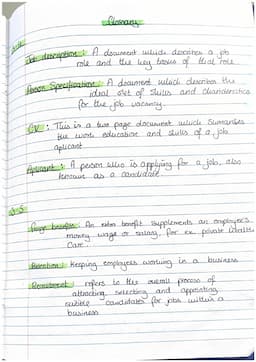 Glossary
Job description : A document which describes a job
role and the key tasks of that role
Person Specification : A document which describes the
ideal set of skills and characteristics
for the job vacancy.
CV : This is a two page document which sumarises
the work education and skills of a job
aplicant
Aplicant : A person who is applying for a job, also
known as a candidate
Fringe benefits : An extra benefit supplements an employee's
money wage or salary, for ex. private health
care.
Retention : Keeping employees working in a business
Recruitment : refers to the overall process of
attracting, selecting and appointing
suitable candidates for jobs within a
business